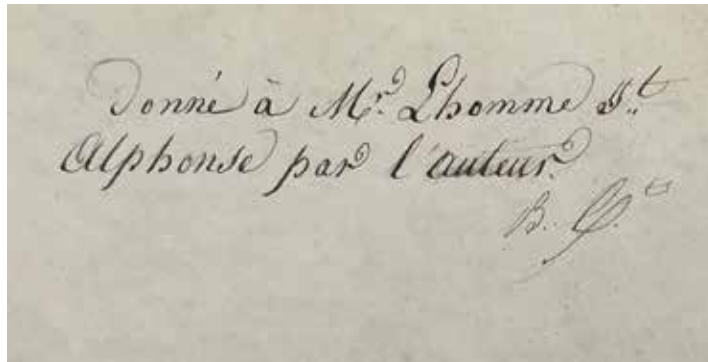 Donné à Mr. Lhomme St.
Alphonse par l'auteur.
B.